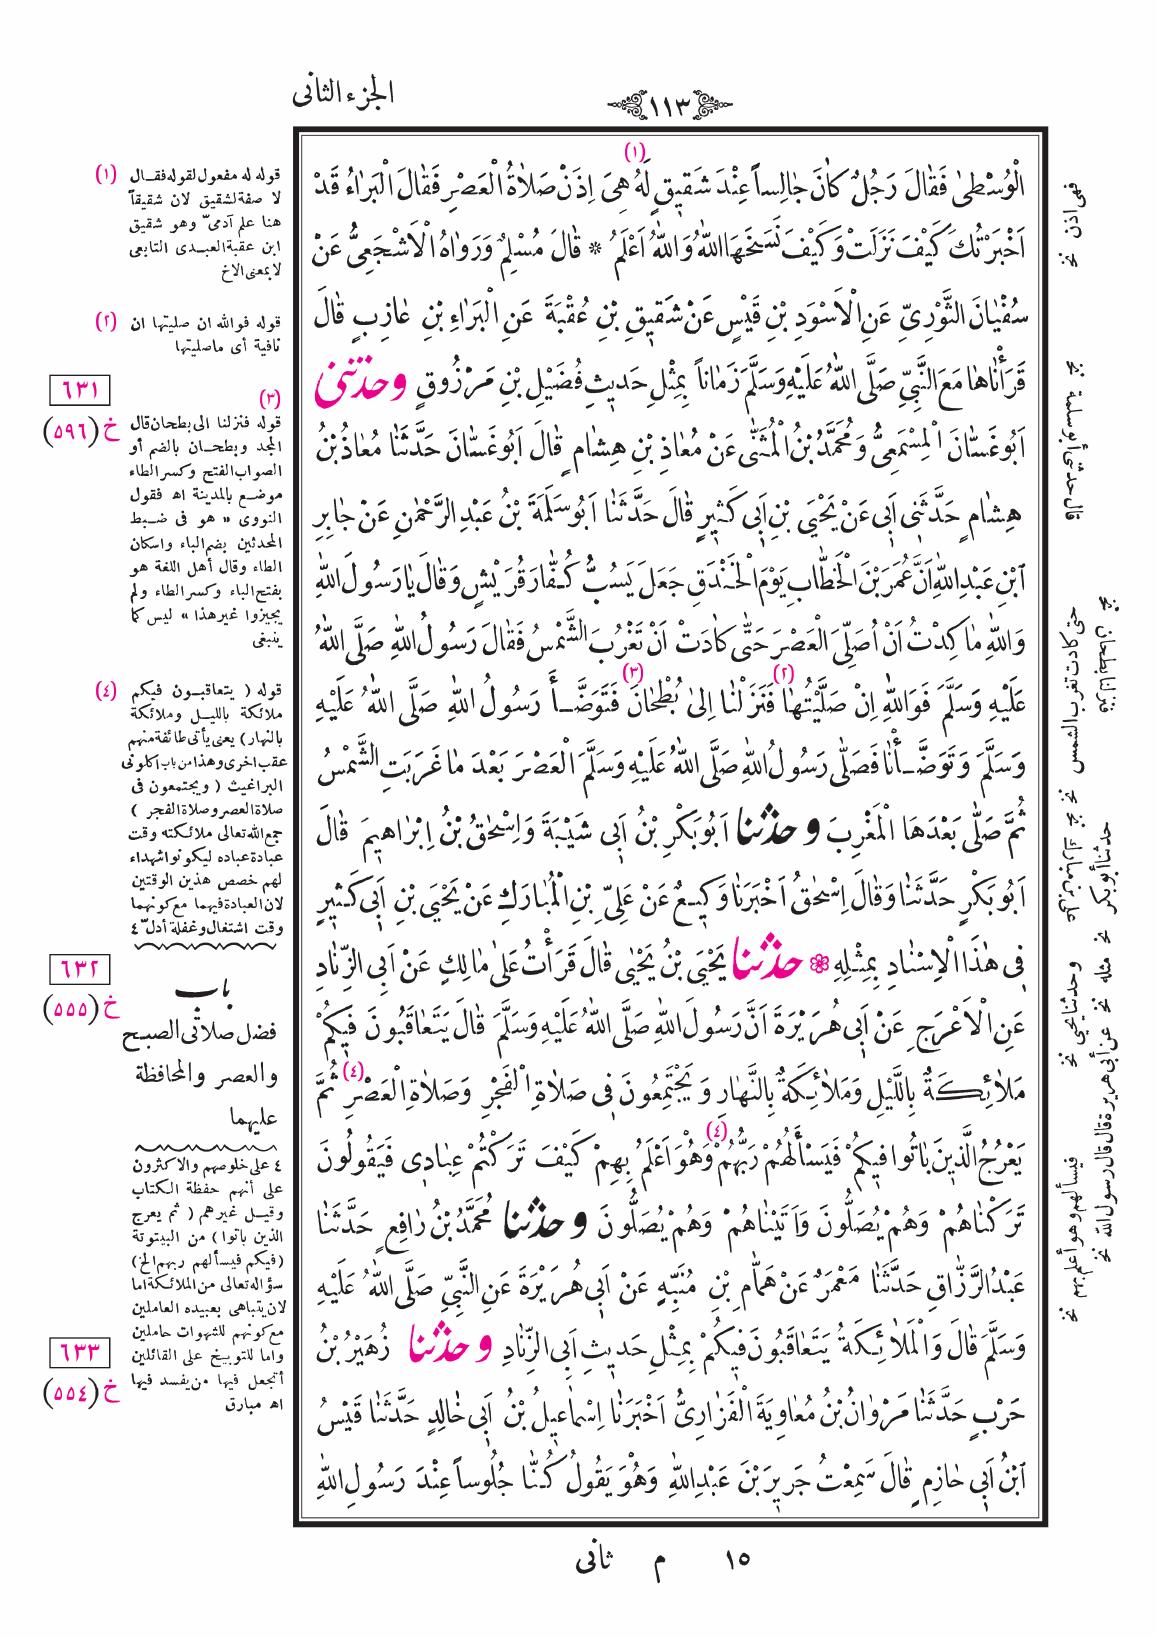 الجزء الثانى
﴿١١٣﴾
الْوُسْطٰى فَقَالَ رَجُلٌ كَانَ جَالِساً عِنْدَ شَقِيقٍ لَهُ (١) هِىَ اِذَنْ صَلاَةُ الْعَصْرِ فَقَالَ الْبَرَاءُ قَدْ
اَخْبَرْتُكَ كَيْفَ نَزَلَتْ وَكَيْفَ نَسَخَهَا اللهُ وَاللهُ اَعْلَمُ * قَالَ مُسْلِمٌ وَرَوَاهُ الْاَشْجَعِىُّ عَنْ
سُفْيَانَ الثَّوْرِىِّ عَنِ الْاَسْوَدِ بْنِ قَيْسٍ عَنْ شَقِيقِ بْنِ عُقْبَةَ عَنِ الْبَرَاءِ بْنِ عَازِبٍ قَالَ
قَرَأْنَاهَا مَعَ النَّبِىِّ صَلَّى اللهُ عَلَيْهِ وَسَلَّمَ زَمَاناً بِمِثْلِ حَدِيثِ فُضَيْلِ بْنِ مَرْزُوقٍ وحَدَّثَنِى
اَبُو غَسَّانَ الْمِسْمَعِىُّ وَمُحَمَّدُ بْنُ الْمُثَنّٰى عَنْ مُعَاذِ بْنِ هِشَامٍ قَالَ اَبُو غَسَّانَ حَدَّثَنَا مُعَاذُ بْنُ
هِشَامٍ حَدَّثَنِى اَبِى عَنْ يَحْيَى بْنِ اَبِى كَثِيرٍ قَالَ حَدَّثَنَا اَبُو سَلَمَةَ بْنُ عَبْدِ الرَّحْمٰنِ عَنْ جَابِرِ
ابْنِ عَبْدِ اللهِ اَنَّ عُمَرَ بْنَ الْخَطَّابِ يَوْمَ الْخَنْدَقِ جَعَلَ يَسُبُّ كُفَّارَ قُرَيْشٍ وَقَالَ يَا رَسُولَ اللهِ
وَاللهِ مَا كِدْتُ اَنْ اُصَلِّىَ الْعَصْرَ حَتّٰى كَادَتْ اَنْ تَغْرُبَ الشَّمْسُ فَقَالَ رَسُولُ اللهِ صَلَّى اللهُ
عَلَيْهِ وَسَلَّمَ فَوَاللهِ اِنْ صَلَّيْتُهَا (٢) فَنَزَلْنَا اِلٰى بُطْحَانَ (٣) فَتَوَضَّأَ رَسُولُ اللهِ صَلَّى اللهُ عَلَيْهِ
وَسَلَّمَ وَتَوَضَّأْنَا فَصَلّٰى رَسُولُ اللهِ صَلَّى اللهُ عَلَيْهِ وَسَلَّمَ الْعَصْرَ بَعْدَ مَا غَرَبَتِ الشَّمْسُ
ثُمَّ صَلّٰى بَعْدَهَا الْمَغْرِبَ وحَدَّثَنَا اَبُو بَكْرِ بْنُ اَبِى شَيْبَةَ وَاِسْحٰقُ بْنُ اِبْرَاهِيمَ قَالَ
اَبُو بَكْرٍ حَدَّثَنَا وَقَالَ اِسْحٰقُ اَخْبَرَنَا وَكِيعٌ عَنْ عَلِىِّ بْنِ الْمُبَارَكِ عَنْ يَحْيَى بْنِ اَبِى كَثِيرٍ
فِى هٰذَا الْاِسْنَادِ بِمِثْلِهِ حَدَّثَنَا يَحْيَى بْنُ يَحْيٰى قَالَ قَرَأْتُ عَلٰى مَالِكٍ عَنْ اَبِى الزِّنَادِ
عَنِ الْاَعْرَجِ عَنْ اَبِى هُرَيْرَةَ اَنَّ رَسُولَ اللهِ صَلَّى اللهُ عَلَيْهِ وَسَلَّمَ قَالَ يَتَعَاقَبُونَ فِيكُمْ
مَلاَئِكَةٌ بِاللَّيْلِ وَمَلاَئِكَةٌ بِالنَّهَارِ وَيَجْتَمِعُونَ فِى صَلاَةِ الْفَجْرِ وَصَلاَةِ الْعَصْرِ (٤) ثُمَّ
يَعْرُجُ الَّذِينَ بَاتُوا فِيكُمْ فَيَسْأَلُهُمْ رَبُّهُمْ (٤) وَهُوَ اَعْلَمُ بِهِمْ كَيْفَ تَرَكْتُمْ عِبَادِى فَيَقُولُونَ
تَرَكْنَاهُمْ وَهُمْ يُصَلُّونَ وَاَتَيْنَاهُمْ وَهُمْ يُصَلُّونَ وحَدَّثَنَا مُحَمَّدُ بْنُ رَافِعٍ حَدَّثَنَا
عَبْدُ الرَّزَّاقِ حَدَّثَنَا مَعْمَرٌ عَنْ هَمَّامِ بْنِ مُنَبِّهٍ عَنْ اَبِى هُرَيْرَةَ عَنِ النَّبِىِّ صَلَّى اللهُ عَلَيْهِ
وَسَلَّمَ قَالَ وَالْمَلاَئِكَةُ يَتَعَاقَبُونَ فِيكُمْ بِمِثْلِ حَدِيثِ اَبِى الزِّنَادِ وحَدَّثَنَا زُهَيْرُ بْنُ
حَرْبٍ حَدَّثَنَا مَرْوَانُ بْنُ مُعَاوِيَةَ الْفَزَارِىُّ اَخْبَرَنَا اِسْمَاعِيلُ بْنُ اَبِى خَالِدٍ حَدَّثَنَا قَيْسُ
ابْنُ اَبِى حَازِمٍ قَالَ سَمِعْتُ جَرِيرَ بْنَ عَبْدِ اللهِ وَهُوَ يَقُولُ كُنَّا جُلُوساً عِنْدَ رَسُولِ اللهِ
١٥ م ثانى
فهى اذن نخ
قال حدثنى أبو سلمة نخ
حتى كادت تغرب الشمس نخ
فنزلنا بطحان نخ
على بن مبارك نخ
حدثنا أبو بكر نخ
مثله نخ
وحدثنا يحيى نخ
عن أبى هريرة قال قال رسول الله نخ
فيسألهم وهو أعلم بهم نخ
(١) قوله له مفعول لقوله فقال
لا صفة لشقيق لان شقيقاً
هنا علم آدمىّ وهو شقيق
ابن عقبة العبدى التابعى
لا بمعنى الاخ
(٢) قوله فوالله ان صليتها ان
نافية أى ماصليتها
٦٣١
خ (٥٩٦)
(٣)
قوله فنزلنا الى بطحان قال
المجد وبطحان بالضم أو
الصواب الفتح وكسر الطاء
موضع بالمدينة اه فقول
النووى « هو فى ضبط
المحدثين بضم الباء واسكان
الطاء وقال أهل اللغة هو
بفتح الباء وكسر الطاء ولم
يجيزوا غير هذا » ليس كما
ينبغى
(٤) قوله ( يتعاقبون فيكم
ملائكة بالليل وملائكة
بالنهار ) يعنى يأتى طائفة منهم
عقب اخرى وهذا من باب اكلونى
البراغيث ( ويجتمعون فى
صلاة العصر وصلاة الفجر )
جمع الله تعالى ملائكته وقت
عبادة عباده ليكونوا شهداء
لهم خصص هذين الوقتين
لان العبادة فيهما مع كونهما
وقت اشتغال وغفلة أدلّ ٤
٦٣٢
خ (٥٥٥)
باب
فضل صلاتى الصبح
والعصر والمحافظة
عليهما
٤ على خلوصهم والاكثرون
على أنهم حفظة الكتاب
وقيل غيرهم ( ثم يعرج
الذين باتوا ) من البيتوتة
(فيكم فيسألهم ربهم الخ)
سؤاله تعالى من الملائكة اما
لان يتباهى بعبيده العاملين
مع كونهم للشهوات حاملين
واما للتوبيخ على القائلين
أتجعل فيها من يفسد فيها
اه مبارق
٦٣٣
خ (٥٥٤)